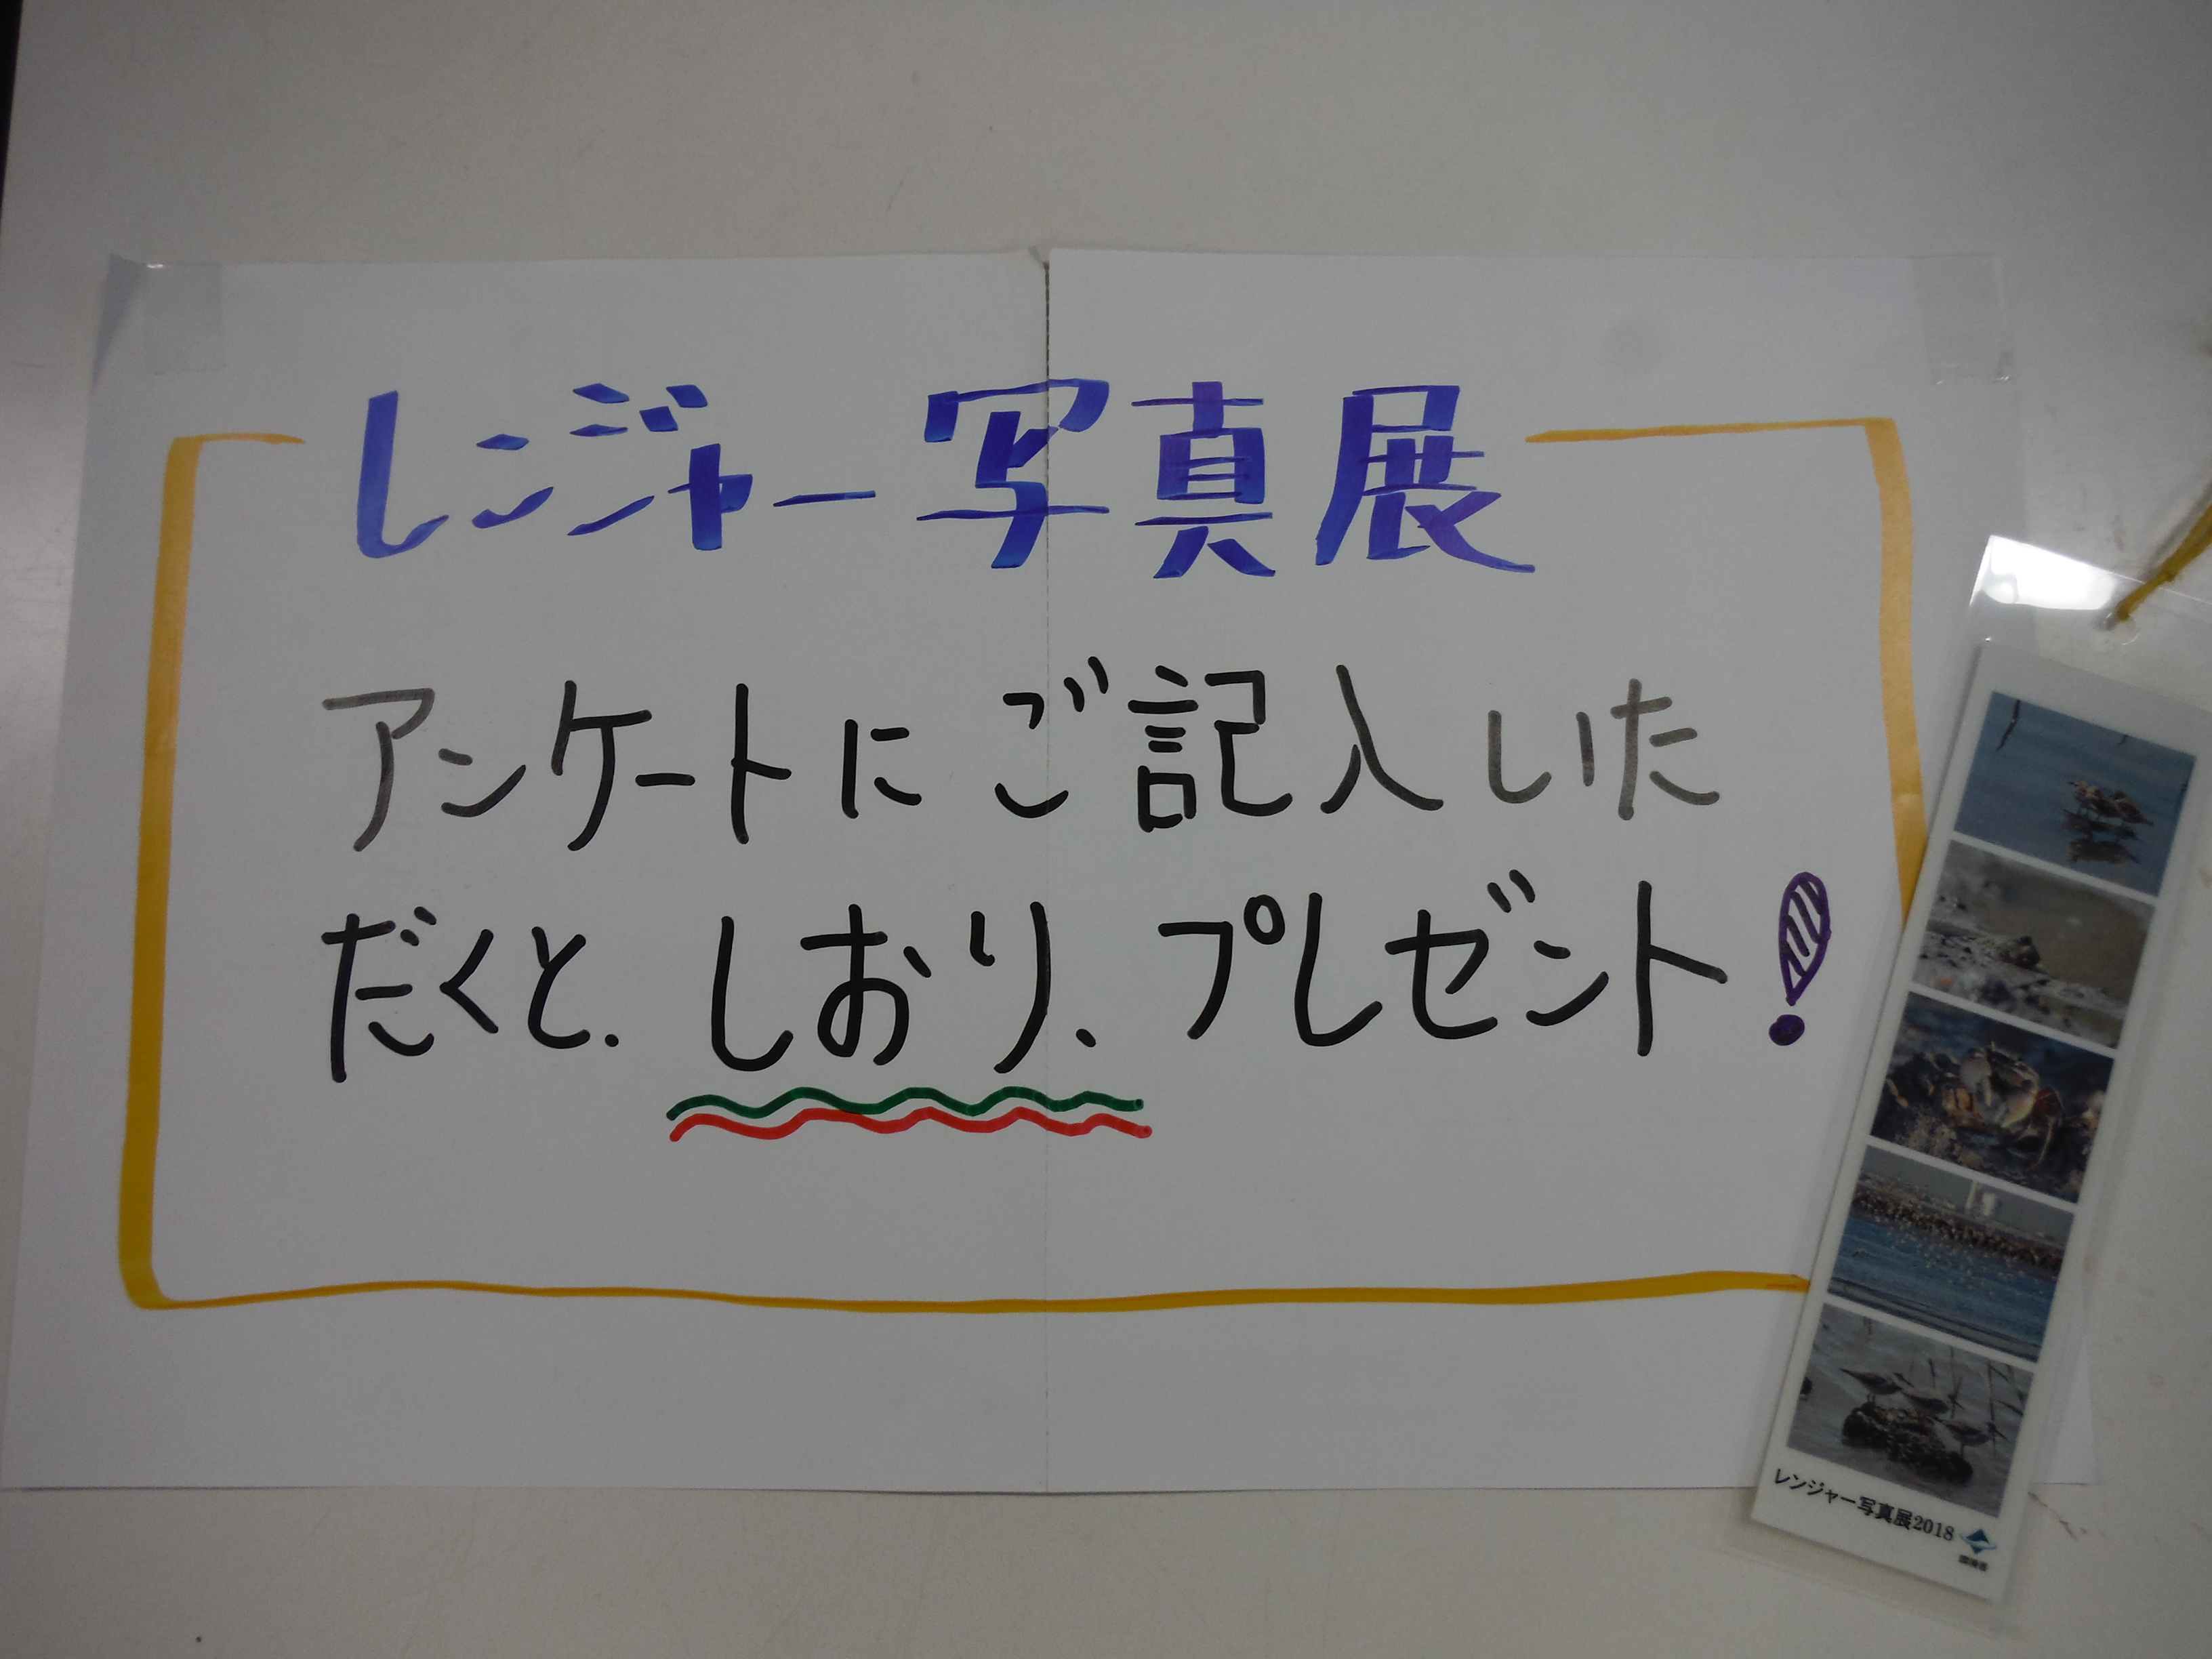 レンジャー写真展
アンケートにご記入いた
だくと、しおり、プレゼント!
レンジャー写真展2018
環境省